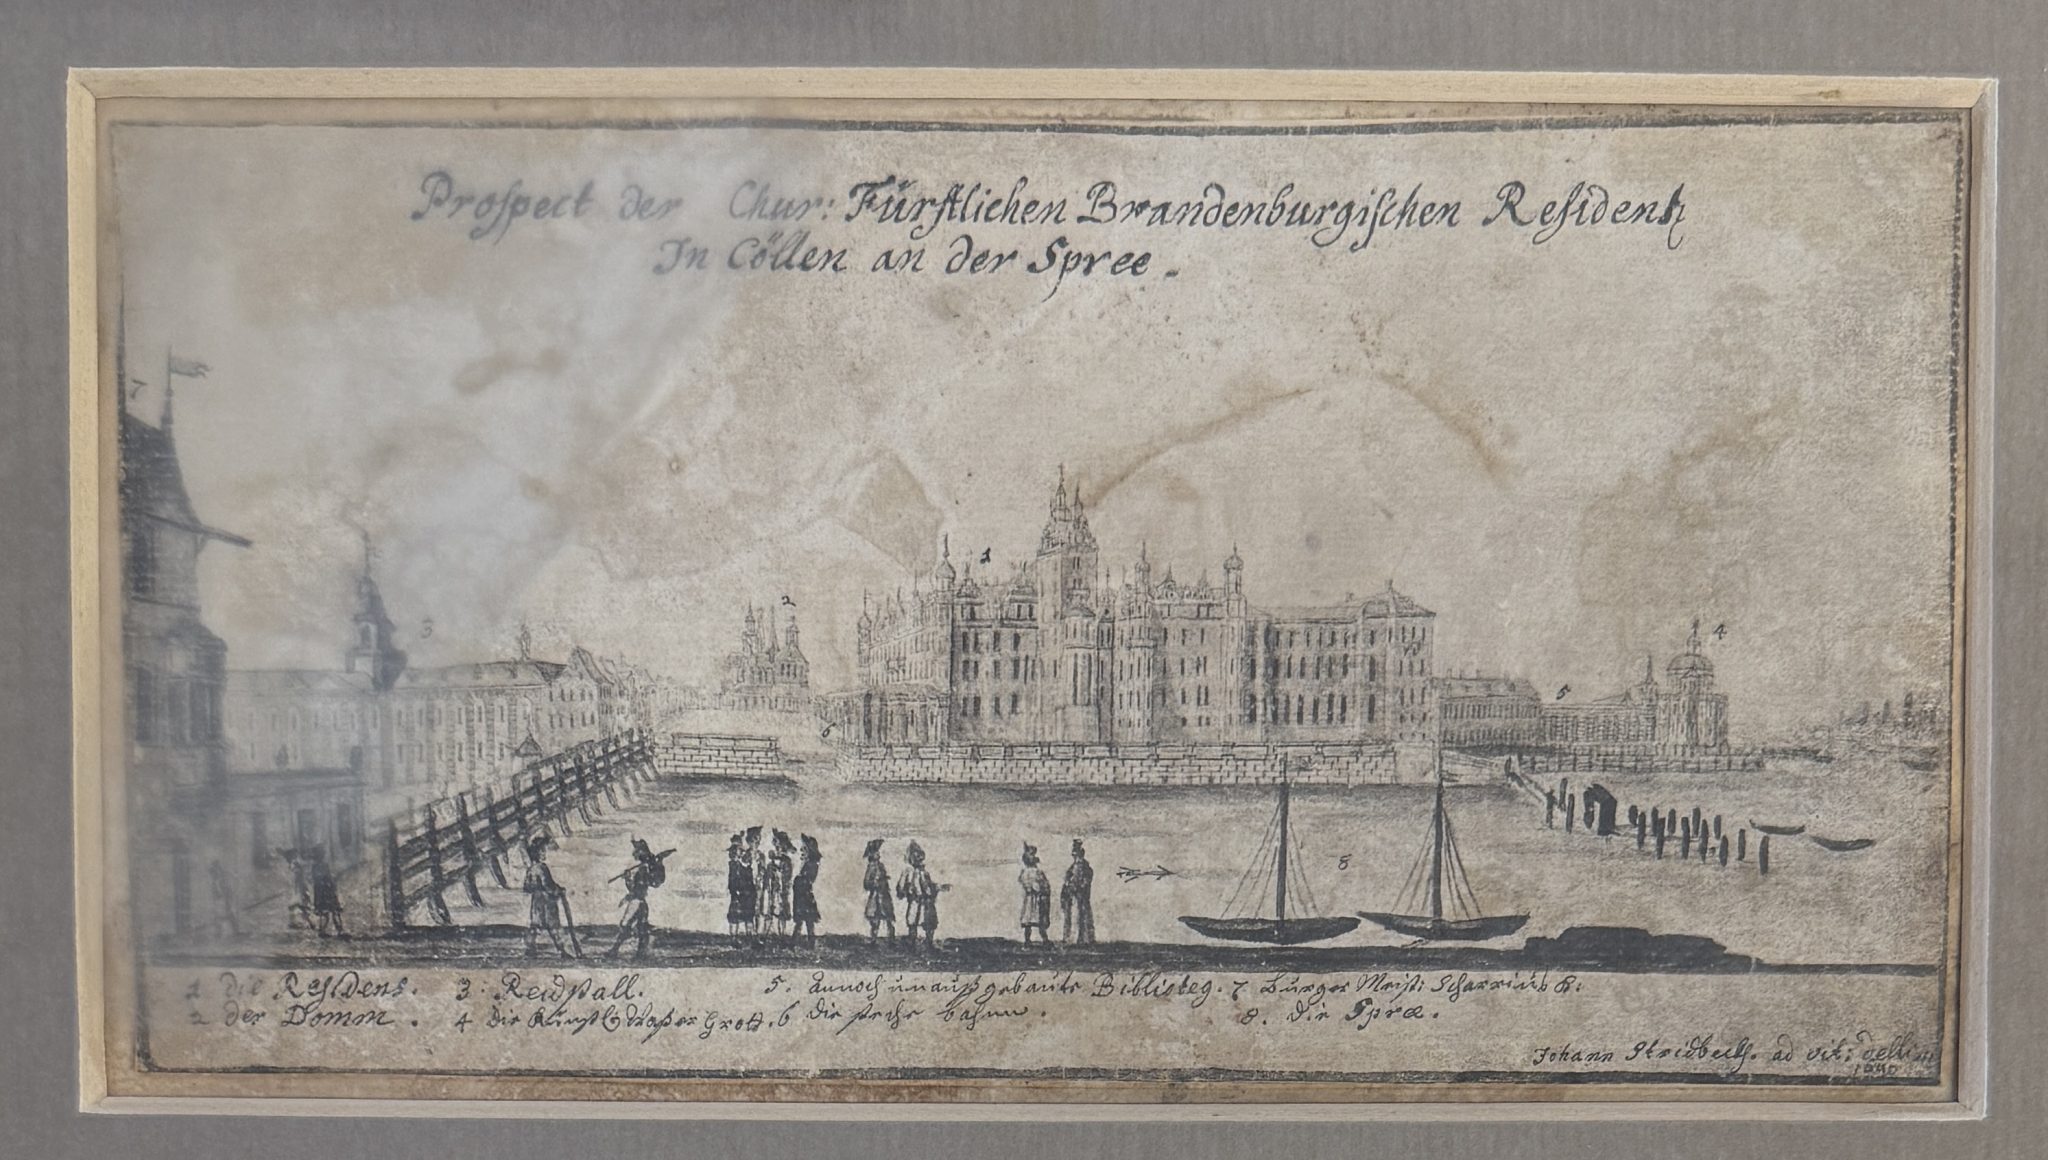 Prospect der Chur: Fürstlichen Brandenburgischen Residentz
In Cöllen an der Spree.
7
2
1
4
3
5
6
8
1 die Residens. 3: Reidstall. 5. annoch unaußgebaute Biblioteg. 7 Burger Meist: Scharrius
2 der Domm. 4 die Künstl: Waßer Grott. 6 die steche bahnn. 8. die Spræ.
Johann Stridbeck. ad vit: